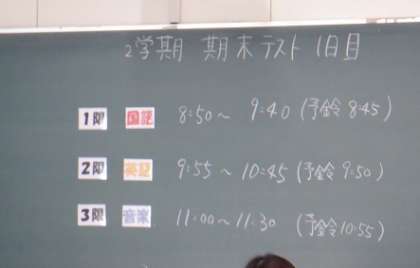 2学期 期末テスト 1日目
1限 国語 8:50～ 9:40 (予鈴 8:45)
2限 英語 9:55～ 10:45 (予鈴 9:50)
3限 音楽 11:00～11:30 (予鈴10:55)